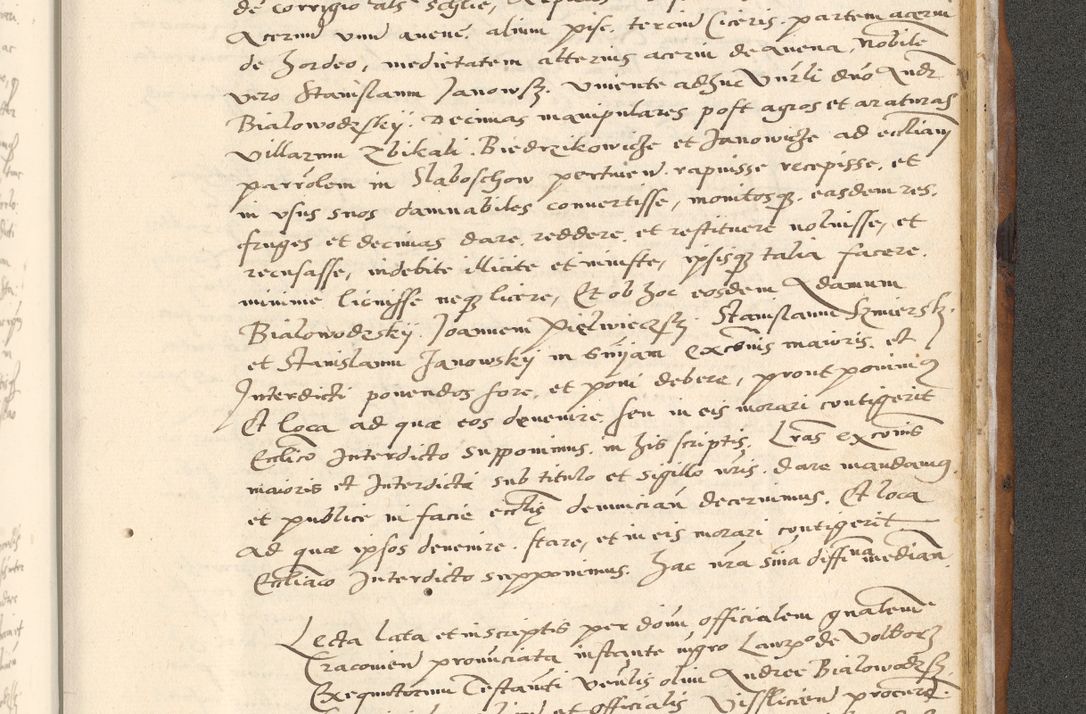 de Corrigio als
Acerum unu avene, alium pise, tercium Ciceris, partem acervi
de hordeo, medietatem alterius acervi de avena, Nobile
vero Stanislaum Janowsky, vivente adhuc Andr
Bialowodzskÿ. Decimas manipulares post agros et araturas
villarum Zbikali, Biedrzikowicze et Janowicze ad eccliam
parrolem in Slaboschow pertinen, rapuisse recepisse, et
in usus suos damnabiles convertisse, monitosq, easdem res,
fruges et decimas dare, reddere, et restituere noluisse, et
recusasse, indebite illicite et iniuste, ipsisq talia facere
minime licuisse neq licere, Et ob hoc eosdem Adamum
Bialowodzskÿ, Joannem Pielwieczsky, Stanislaum
et Stanislaum Janowskÿ in excōnis maioris, et
Interdicti ponendos fore, et poni debere, prout ponim9
Et loca ad quæ eos devenire, seu in eis morari contigerit
Ecclico Interdicto supponimus, in his scriptis, Lras excōnis
maioris et Interdicti sub titulo et sigillo nris, dare mandam9,
et publice in facie ecclię denuncian decernimus, Et loca
ad quæ ipsos devenire, stare, et in eis morari contigerit
Eccliaco Interdicto supponimus. Hac nra snia diffinna median
Lecta lata et in scriptis per dōnū officialem gnalem
Cracovien pronūciata instante nigro Laurº de Volborz
Exequutorum Testanti olim Andree Bialowodzsky
et officialis Vissliciens procure